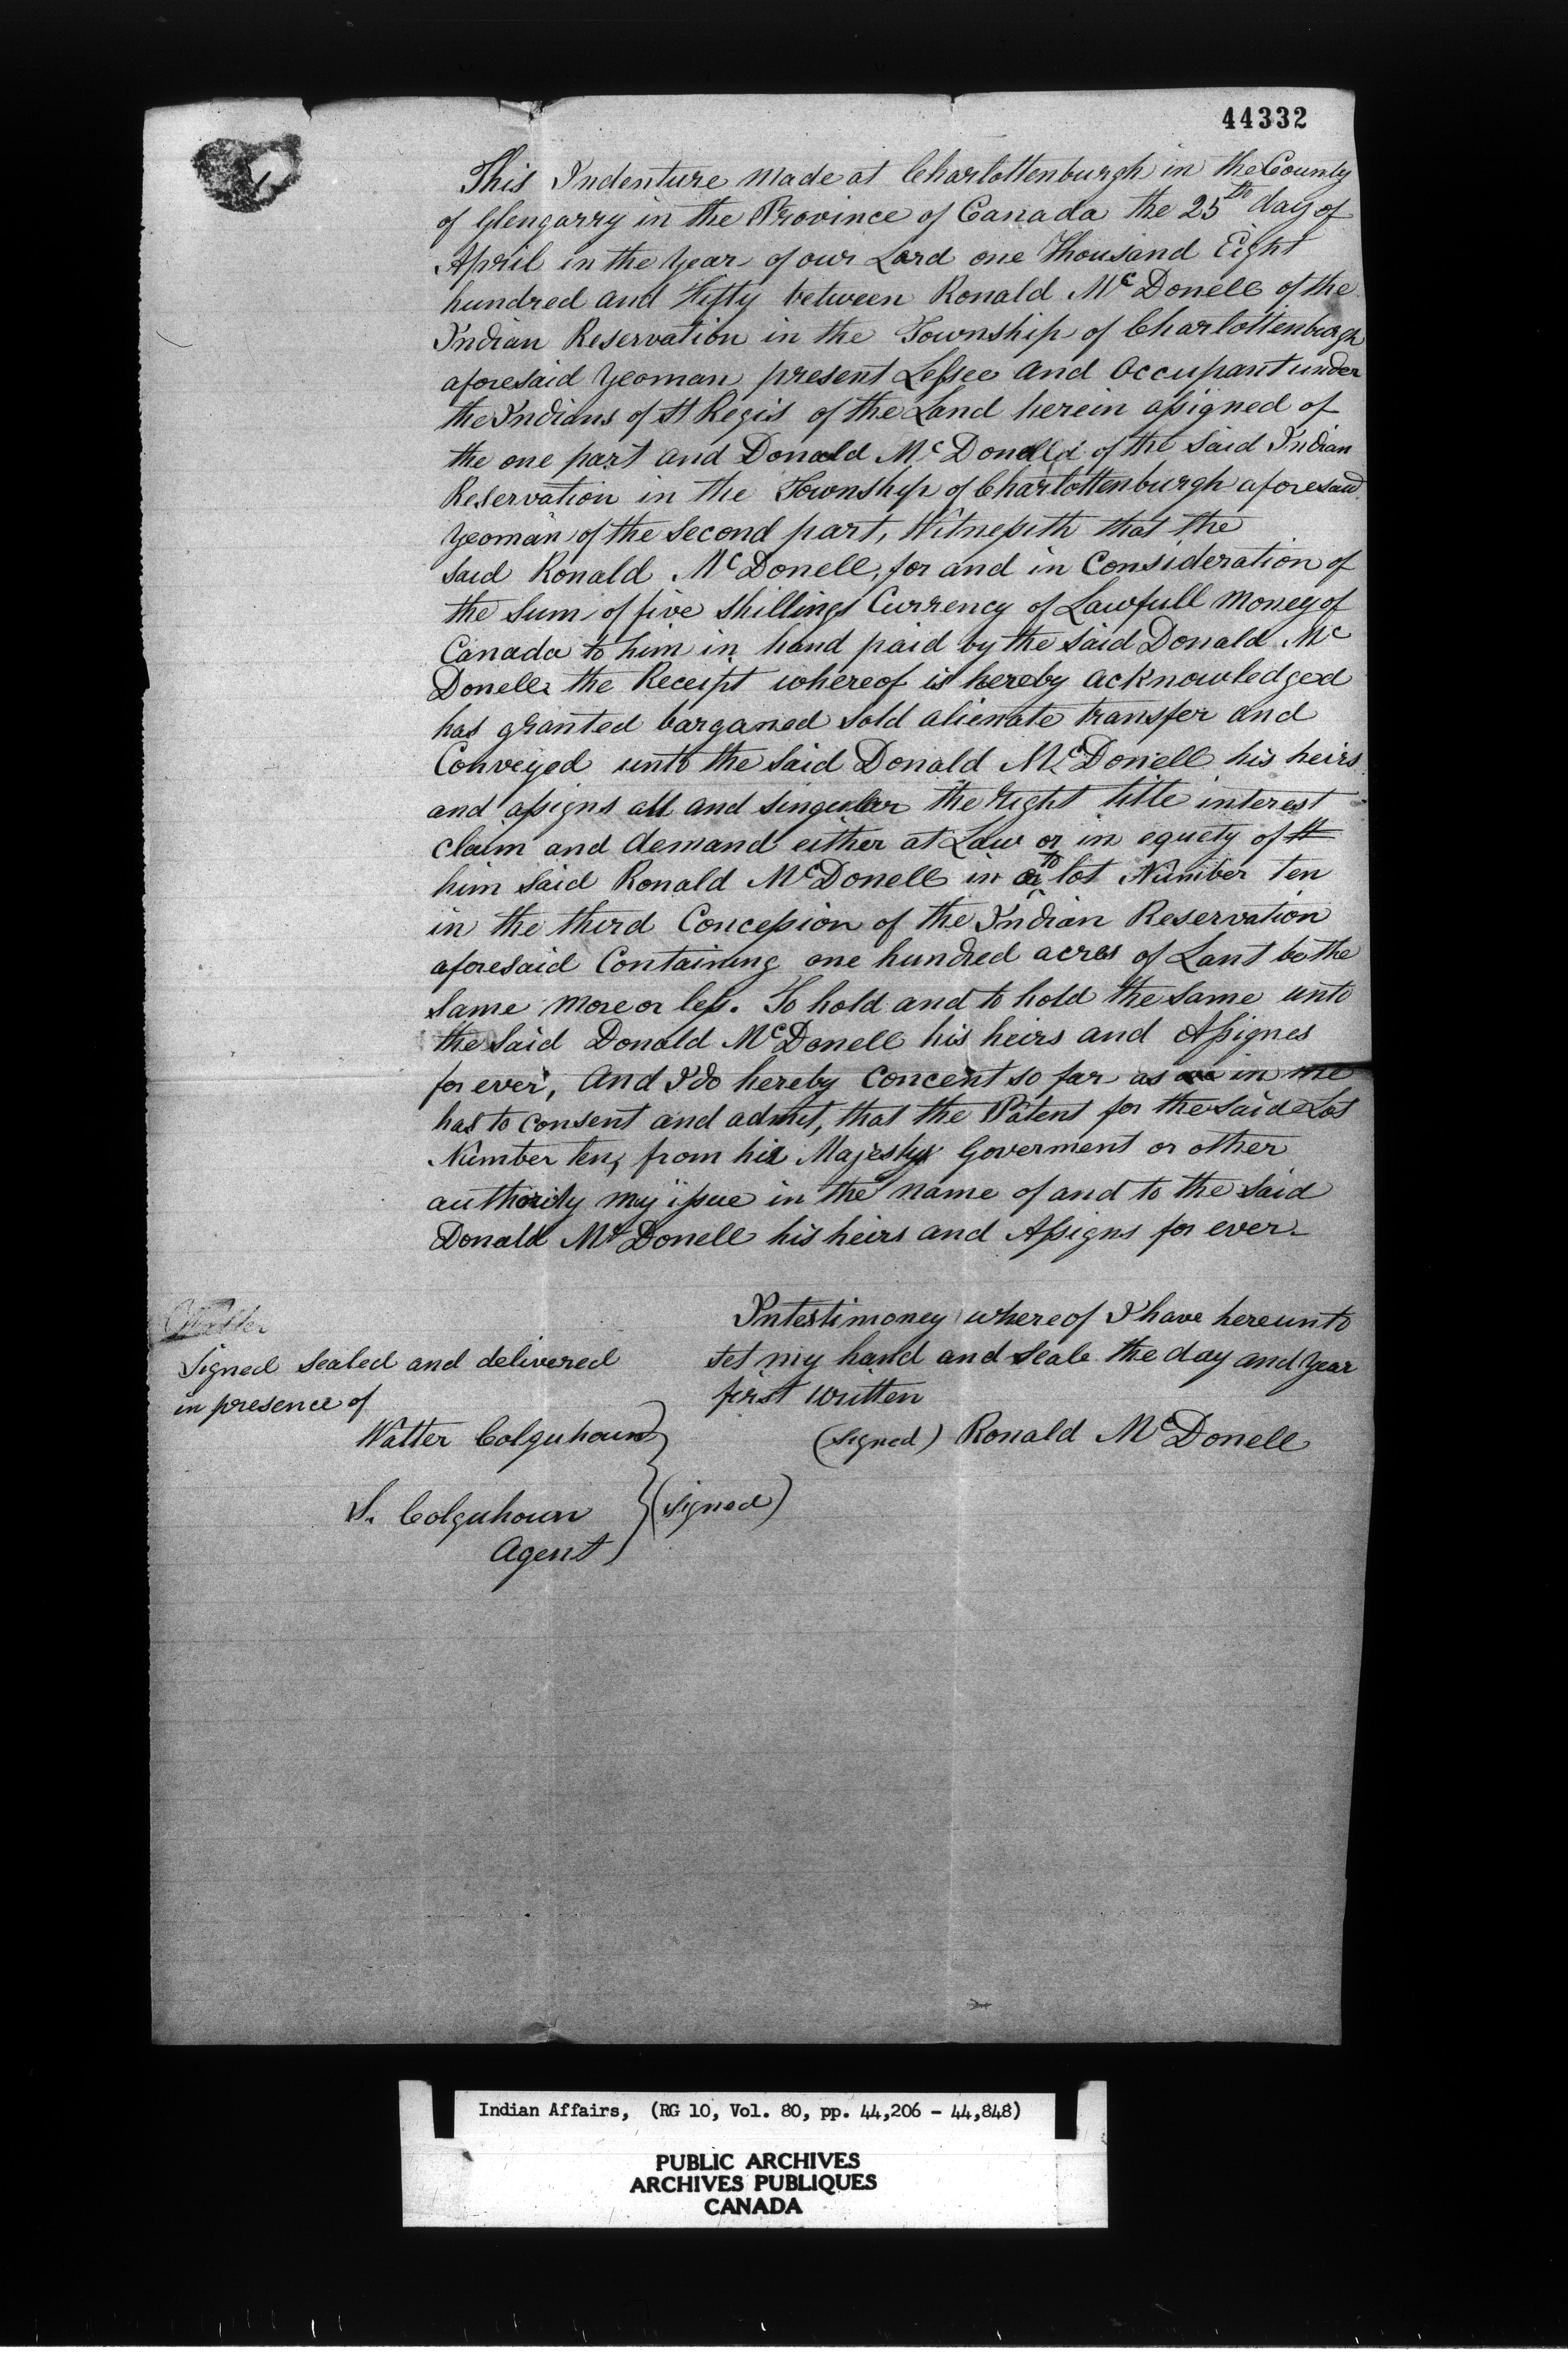 44332
This Indenture made at Charlottenburgh in the County
of Glengarry in the Province of Canada the 25th day of
April in the Year of our Lord one Thousand Eight
hundred and Fifty between Ronald McDonell of the
Indian Reservation in the Township of Charlottenburgh
aforesaid Yeoman present Lessee and Occupant under
the Indians of St Regis of the Land herein assigned of
the one part and Donald McDonell of the Said Indian
Reservation in the Township of Charlottenburgh aforesaid
Yeoman of the Second part, Witnessith that the
Said Ronald McDonell, for and in Consideration of
the Sum of five Shillings Currency of Lawfull Money of
Canada to him in hand paid by the Said Donald Mc
Donell the Receipt whereof is hereby acknowledged
has granted barganed Sold alienate transfer and
Conveyed unto the Said Donald McDonell his heirs
and assigns all and Singular the right title interest
claim and demand either at Law or in equety of
him Said Ronald McDonell in to lot Number ten
in the third Concession of the Indian Reservation
aforesaid Containing one hundred acres of Lant be the
Same more or less. To hold and to hold the Same unto
the Said Donald McDonell his heirs and Assignes
for ever, And I do hereby Concent so far as in me
has to consent and admit, that the Patent for the Said Lot
Number ten, from his Majestys Goverment or other
authority my issue in the name of and to the Said
Donald McDonell his heirs and Assigns for ever
Intestimoney whereof I have hereunto
Set my hand and Seale the day and Year
first written
(Signed) Ronald McDonell
Signed Sealed and delivered
in presence of
Walter Colquhoun
S. Colquhoun
Agent
(Signed)
Indian Affairs, (RG 10, Vol. 80, pp. 44,206 - 44,848)
PUBLIC ARCHIVES
ARCHIVES PUBLIQUES
CANADA